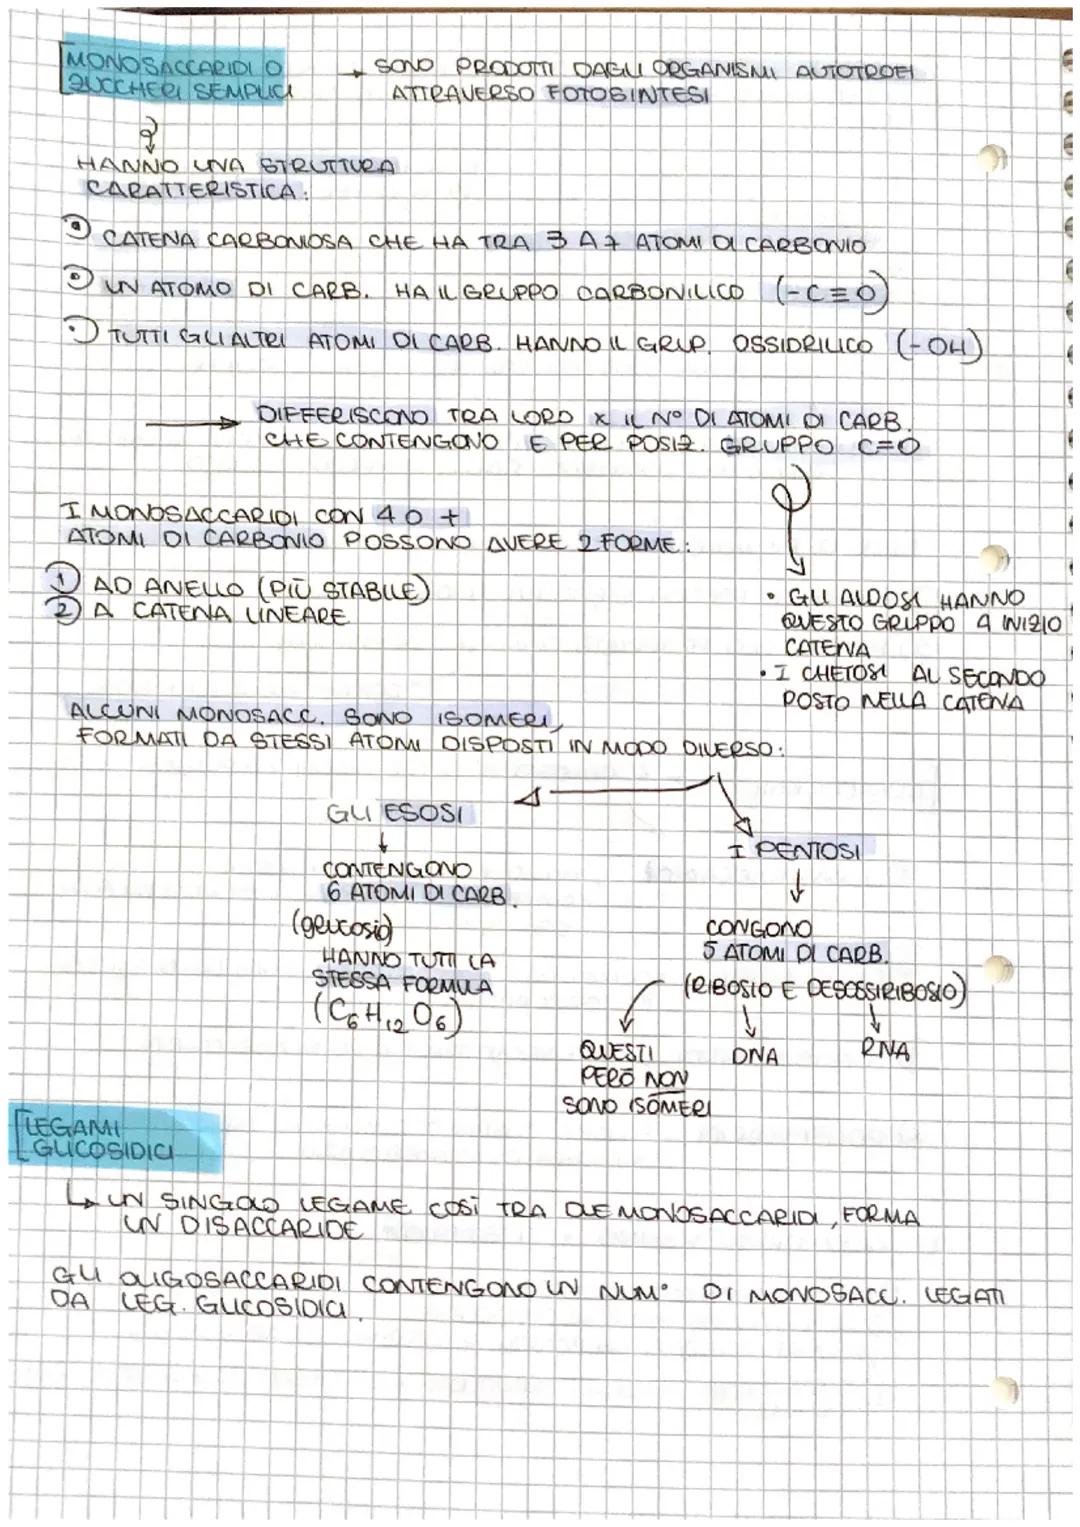 MONOSACCARIDI O
ZUCCHERI SEMPLICI
→ SONO PRODOTTI DAGLI ORGANISMI AUTOTROFI
ATTRAVERSO FOTOSINTESI
HANNO UNA STRUTTURA
CARATTERISTICA:
CATENA CARBONIOSA CHE HA TRA 3 A 7 ATOMI DI CARBONIO
UN ATOMO DI CARB. HA IL GRUPPO CARBONILICO (-C≡O)
TUTTI GLI ALTRI ATOMI DI CARB. HANNO IL GRUP. OSSIDRILICO (-OH)
→ DIFFERISCONO TRA LORO X IL N° DI ATOMI DI CARB.
CHE CONTENGONO E PER POSIZ. GRUPPO C=O
I MONOSACCARIDI CON 4 O +
ATOMI DI CARBONIO POSSONO AVERE 2 FORME:
1 AD ANELLO (PIÙ STABILE)
2 A CATENA LINEARE
• GLI ALDOSI HANNO
QUESTO GRUPPO A INIZIO
CATENA
• I CHETOSI AL SECONDO
POSTO NELLA CATENA
ALCUNI MONOSACC. SONO ISOMERI,
FORMATI DA STESSI ATOMI DISPOSTI IN MODO DIVERSO:
GLI ESOSI
↓
CONTENGONO
6 ATOMI DI CARB.
(glucosio)
HANNO TUTTI LA
STESSA FORMULA
(C₆H₁₂O₆)
I PENTOSI
↓
CONGONO
5 ATOMI DI CARB.
(RIBOSIO E DESOSSIRIBOSIO)
QUESTI
PERÒ NON
SONO ISOMERI
DNA
RNA
LEGAMI
GLICOSIDICI
↳ UN SINGOLO LEGAME COSÌ TRA DUE MONOSACCARIDI, FORMA
UN DISACCARIDE
GLI OLIGOSACCARIDI CONTENGONO UN NUM° DI MONOSACC. LEGATI
DA LEG. GLICOSIDICI.